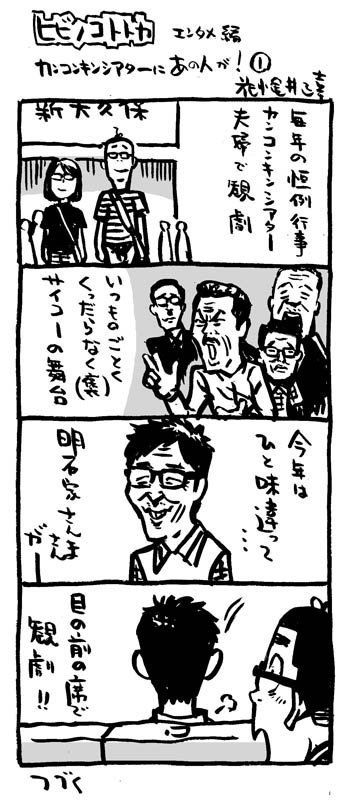 ヒビノコトトカ エンタメ編
カンコンキンシアターにあの人が！①
花小金井正幸
新大久保
毎年の恒例行事
カンコンキンシアター
夫婦で観劇
いつものごとく
くっだらなく(褒)
サイコーの舞台
今年は
ひと味違って…
明石家さんま
さん
がー
目の前の席で
観劇!!
つづく